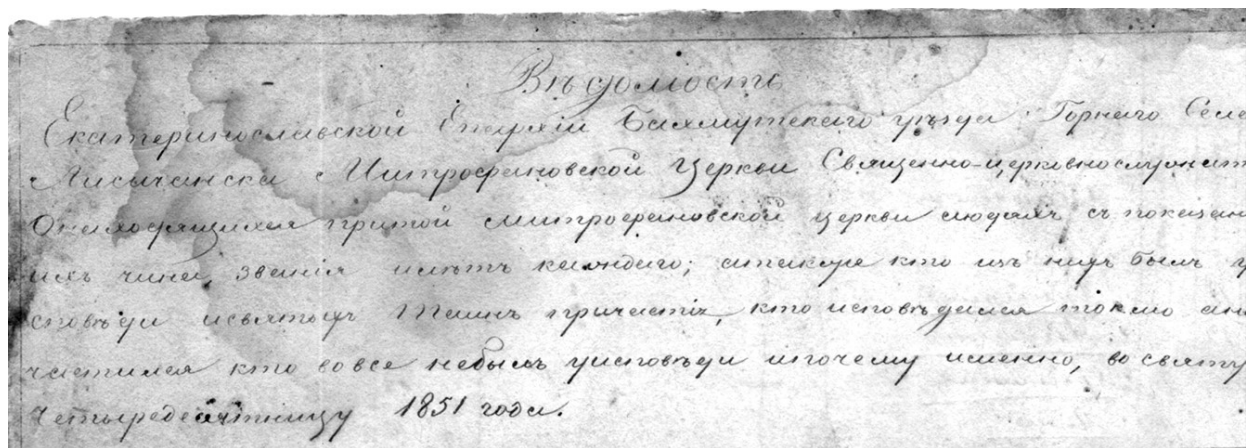 Вѣдомость
Екатеринославской Епархіи Бахмутскаго уѣзда Горнаго Селе
Лисичанска Митрофановской Церкви Священно-церковнослужит
Онаходящихся притой Митрофановской церкви людяхъ съ показан
ихъ чина, званія илѣтъ каждаго; атакже кто изъ нихъ былъ у
сповѣди исвятыхъ Таинъ причастія, кто исповѣдался токмо ане
частился кто вовсе небылъ уисповѣди ипочему именно, во святу
Четыредесятницу 1851 года.